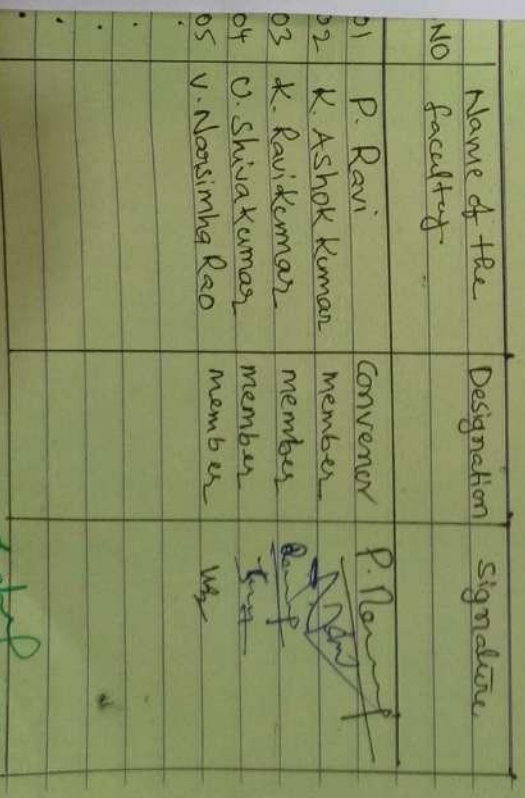 NO Name of the Designation Signature
faculty.
01 P. Ravi Convenor
02 K. Ashok Kumar member
03 K. Ravi Kumar member
04 O. Shiva Kumar member
05 V. Narsimha Rao member